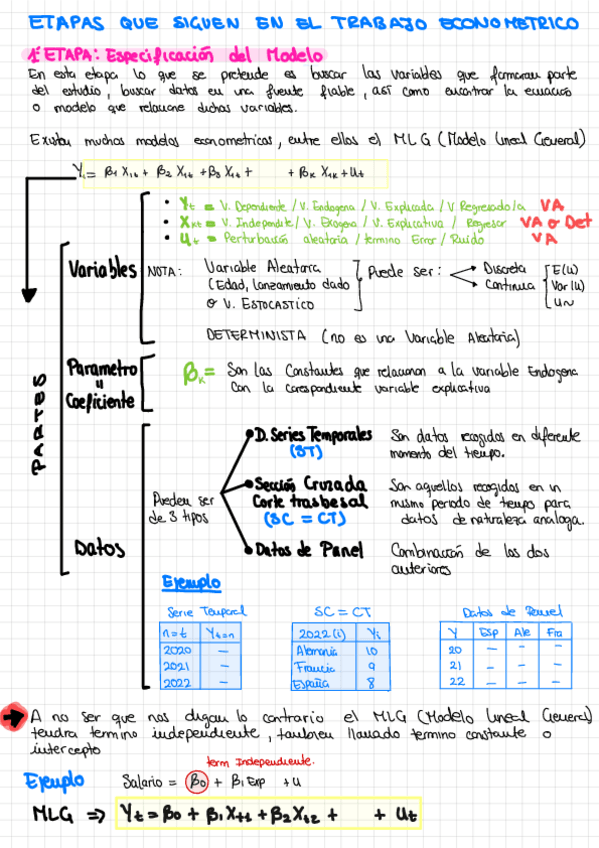 ETAPAS QUE SIGUEN EN EL TRABAJO ECONOMETRICO
1ª ETAPA: Especificación del Modelo
En esta etapa lo que se pretende es buscar las variables que formaran parte
del estudio, buscar datos en una fuente fiable, así como encontrar la ecuación
o modelo que relacione dichas variables.
Existen muchos modelos econometricos, entre ellos el MLG (Modelo Lineal General)
Yi = β1 X1t + β2 X2t + β3 X3t + + βK XKt + Ut
PARTES
Variables
• Yt = V. Dependiente / V. Endogena / V. Explicada / V Regresado/a VA
• Xkt = V. Independite / V. Exogena / V. Explicativa / Regresor VA o Det
• Ut = Perturbación aleatoria / termino Error / Ruido VA
NOTA: Variable Aleatoria
(Edad, lanzamiento dado
o V. ESTOCASTICO
Puede ser:
Discreta
Continua
E(U)
Var (U)
U~
DETERMINISTA (no es una Variable Aleatoria)
Parametro
u
Coeficiente
βK = Son las Constantes que relacionan a la variable Endogena
Con la correspondiente variable explicativa
Datos
Pueden ser
de 3 tipos
D. Series Temporales
(ST)
Son datos recogidos en diferente
momento del tiempo.
Sección Cruzada
Corte trasbesal
(SC = CT)
Son aquellos recogidos en un
mismo periodo de tiempo para
datos de naturaleza analoga.
Datos de Panel
Combinación de los dos
anteriores
Ejemplo
Serie Temporal
n=t Yt=n
2020 –
2021 –
2022 –
SC = CT
2022 (i) Yi
Alemania 10
Francia 9
España 8
Datos de Panel
Y Esp Ale Fra
20 – – –
21 – – –
22 – – –
A no ser que nos digan lo contrario el MLG (Modelo Lineal General)
tendra termino independiente, tambien llamado termino constante o
intercepto
term Independiente.
Ejemplo Salario = β0 + β1 Exp + u
MLG => Yt = β0 + β1 Xt1 + β2 Xt2 + + Ut